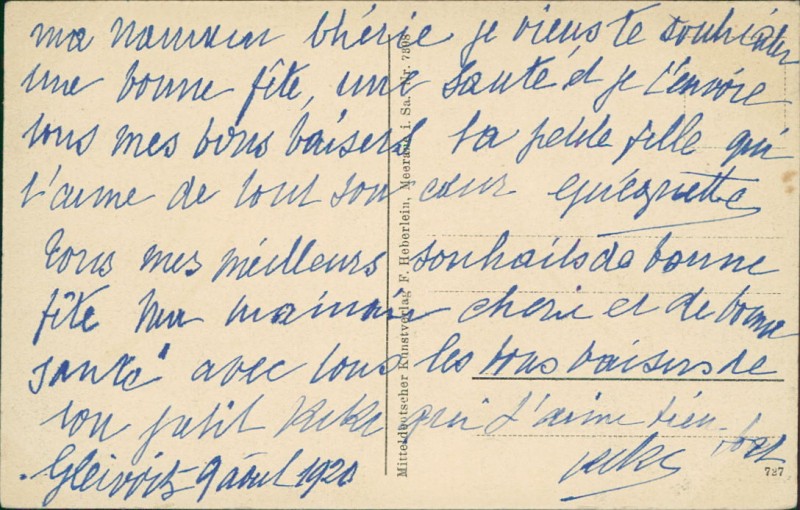 ma maman chérie je viens te souhaiter
une bonne fête, une santé et je t'envoie
tous mes bons baisers ta petite fille qui
t'aime de tout son cœur
Tous mes meilleurs souhaits de bonne
fête ma maman cherie et de bonne
santé avec tous les bons baisers de
ton petit Kiki qui t'aime bien fort
Kiki
Gleiwitz 9 août 1920
Mitteldeutscher Kunstverlag F. Heberlein, Meerane i. Sa. Nr. 7398
727